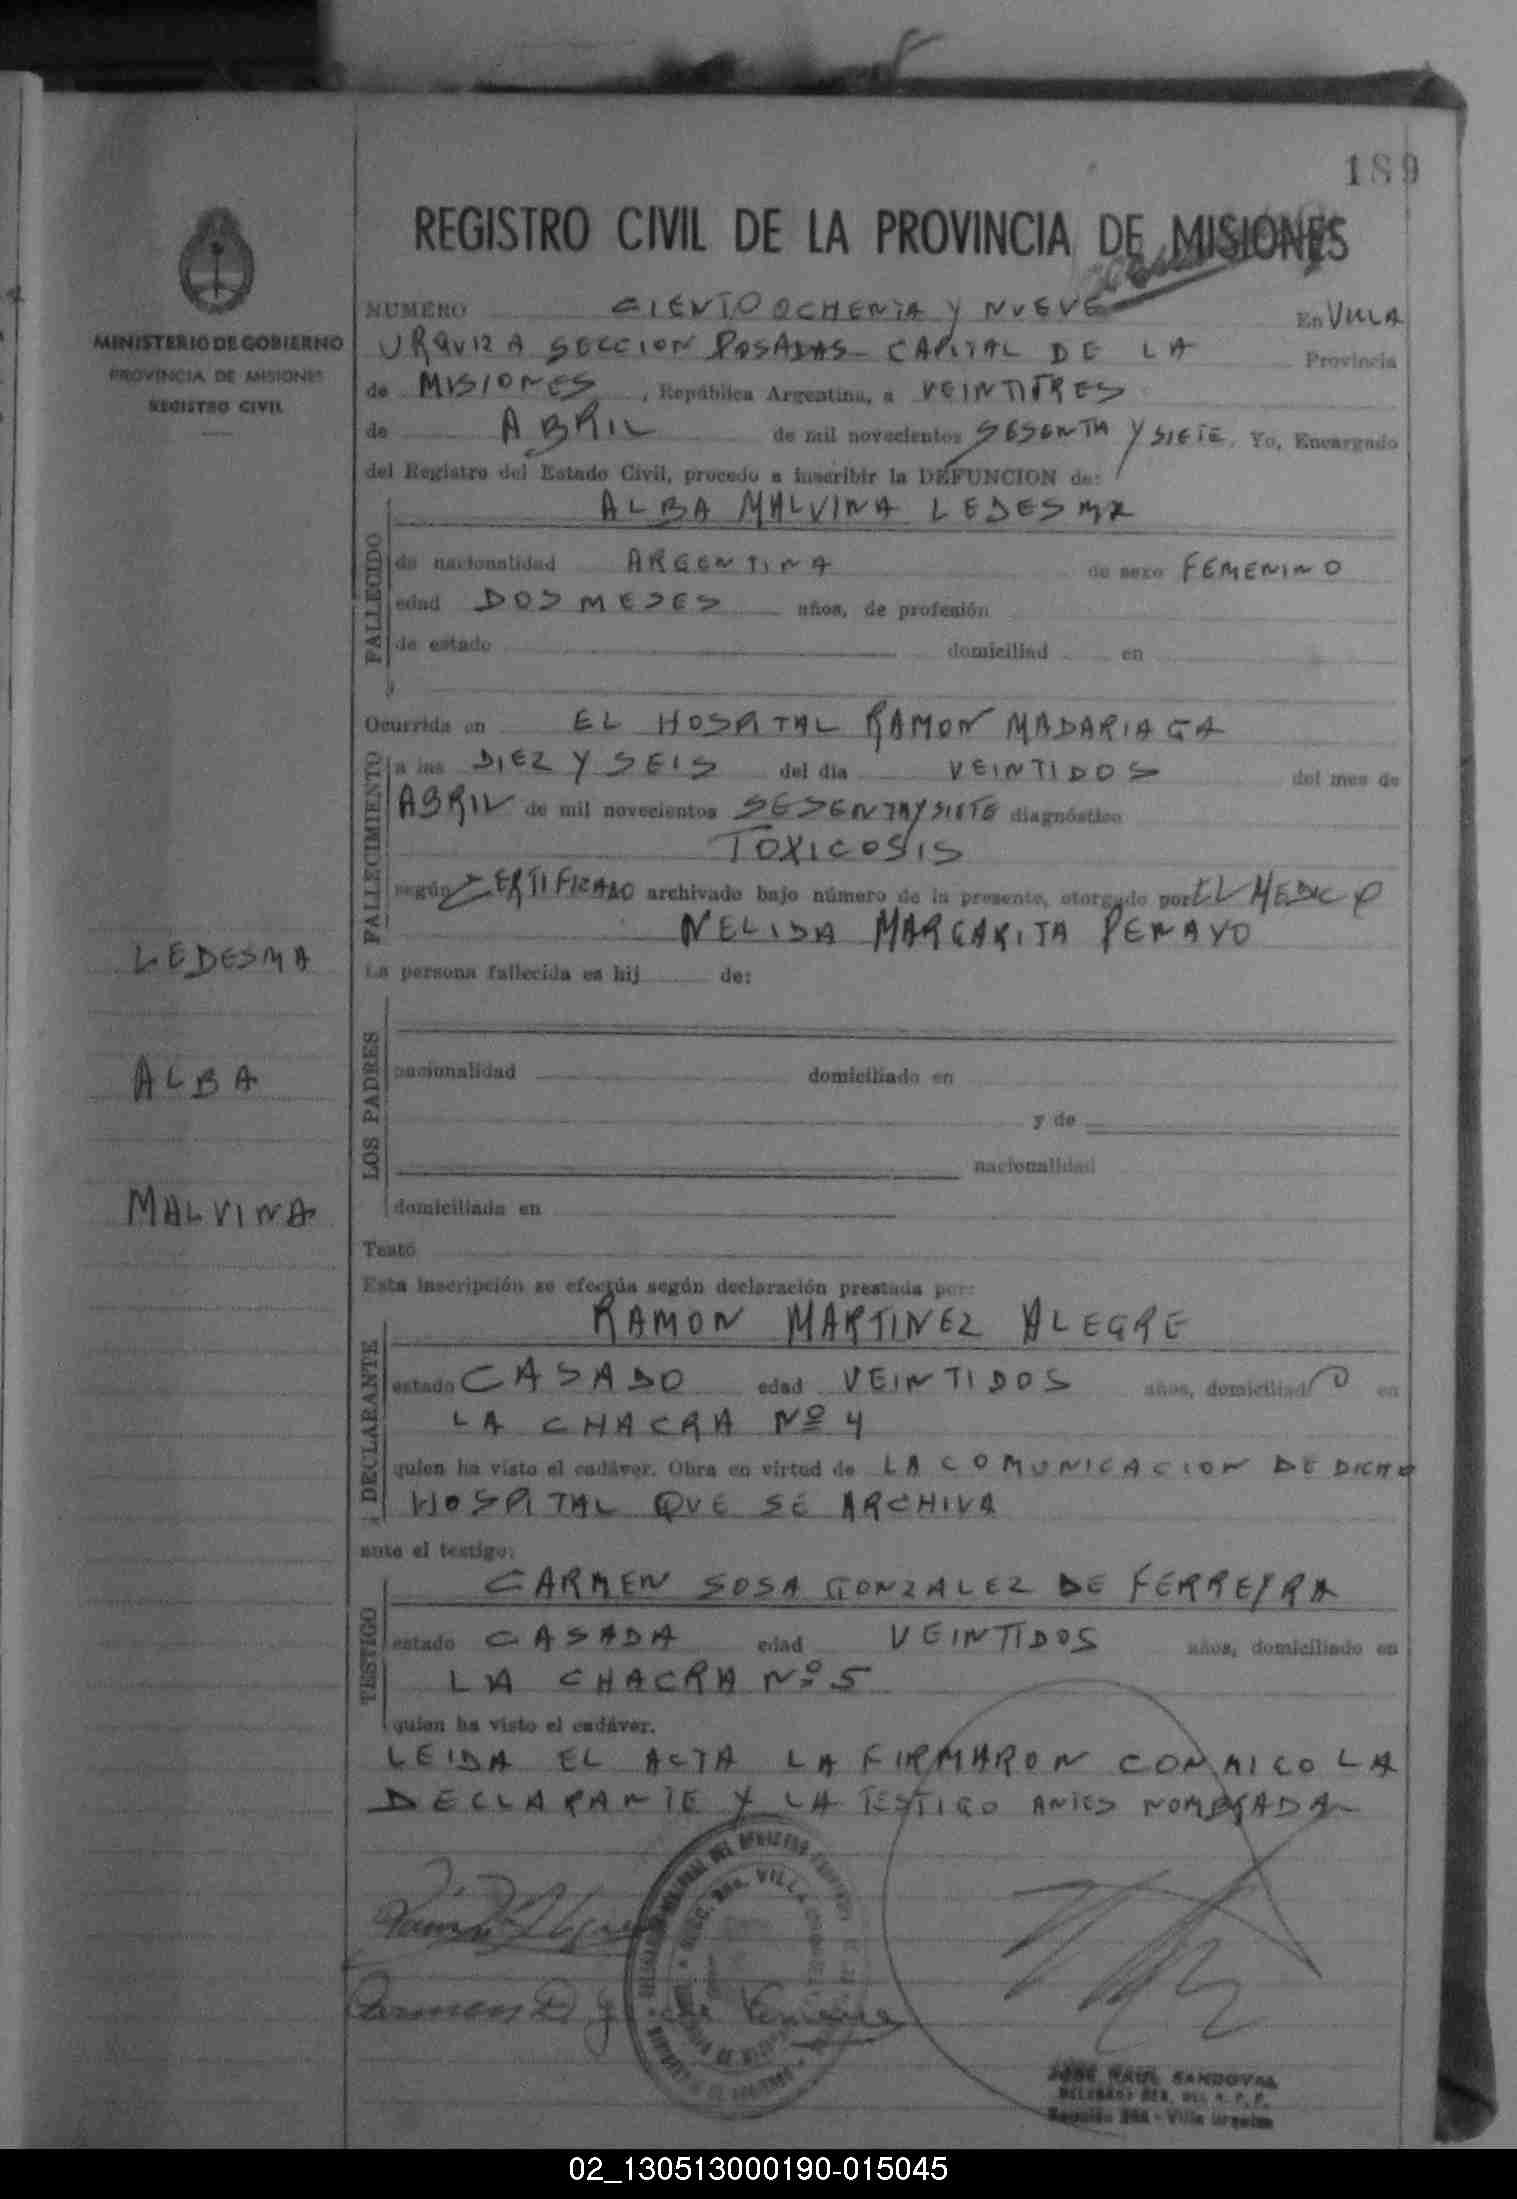 189
REGISTRO CIVIL DE LA PROVINCIA DE MISIONES
MINISTERIO DE GOBIERNO
PROVINCIA DE MISIONES
REGISTRO CIVIL
NUMERO CIENTO OCHENTA Y NUEVE En VILLA
URQUIZA SECCION POSADAS CAPITAL DE LA Provincia
de MISIONES, República Argentina, a VEINTITRES
de ABRIL de mil novecientos SESENTA Y SIETE. Yo, Encargado
del Registro del Estado Civil, procedo a inscribir la DEFUNCION de:
ALBA MALVINA LEDESMA
FALLECIDO
de nacionalidad ARGENTINA de sexo FEMENINO
edad DOS MESES años, de profesión
de estado domiciliad en
Ocurrida en EL HOSPITAL RAMON MADARIAGA
FALLECIMIENTO
a las DIEZ Y SEIS del día VEINTIDOS del mes de
ABRIL de mil novecientos SESENTA Y SIETE diagnóstico
TOXICOSIS
según CERTIFICADO archivado bajo número de la presente, otorgado por EL MEDICO
NELIDA MARGARITA PENAYO
La persona fallecida es hij de:
LEDESMA
ALBA
MALVINA
LOS PADRES
nacionalidad domiciliado en
y de
nacionalidad
domiciliada en
Testó
Esta inscripción se efectúa según declaración prestada por:
RAMON MARTINEZ ALEGRE
DECLARANTE
estado CASADO edad VEINTIDOS años, domiciliado en
LA CHACRA Nº 4
quien ha visto el cadáver. Obra en virtud de LA COMUNICACION DE DICHO
HOSPITAL QUE SE ARCHIVA
ante el testigo:
CARMEN SOSA GONZALEZ DE FERREYRA
TESTIGO
estado CASADA edad VEINTIDOS años, domiciliado en
LA CHACRA Nº 5
quien ha visto el cadáver.
LEIDA EL ACTA LA FIRMARON CONMIGO LA
DECLARANTE Y LA TESTIGO ANTES NOMBRADA
JOSE RAUL SANDOVAL
Sección 2da - Villa Urquiza
02_130513000190-015045